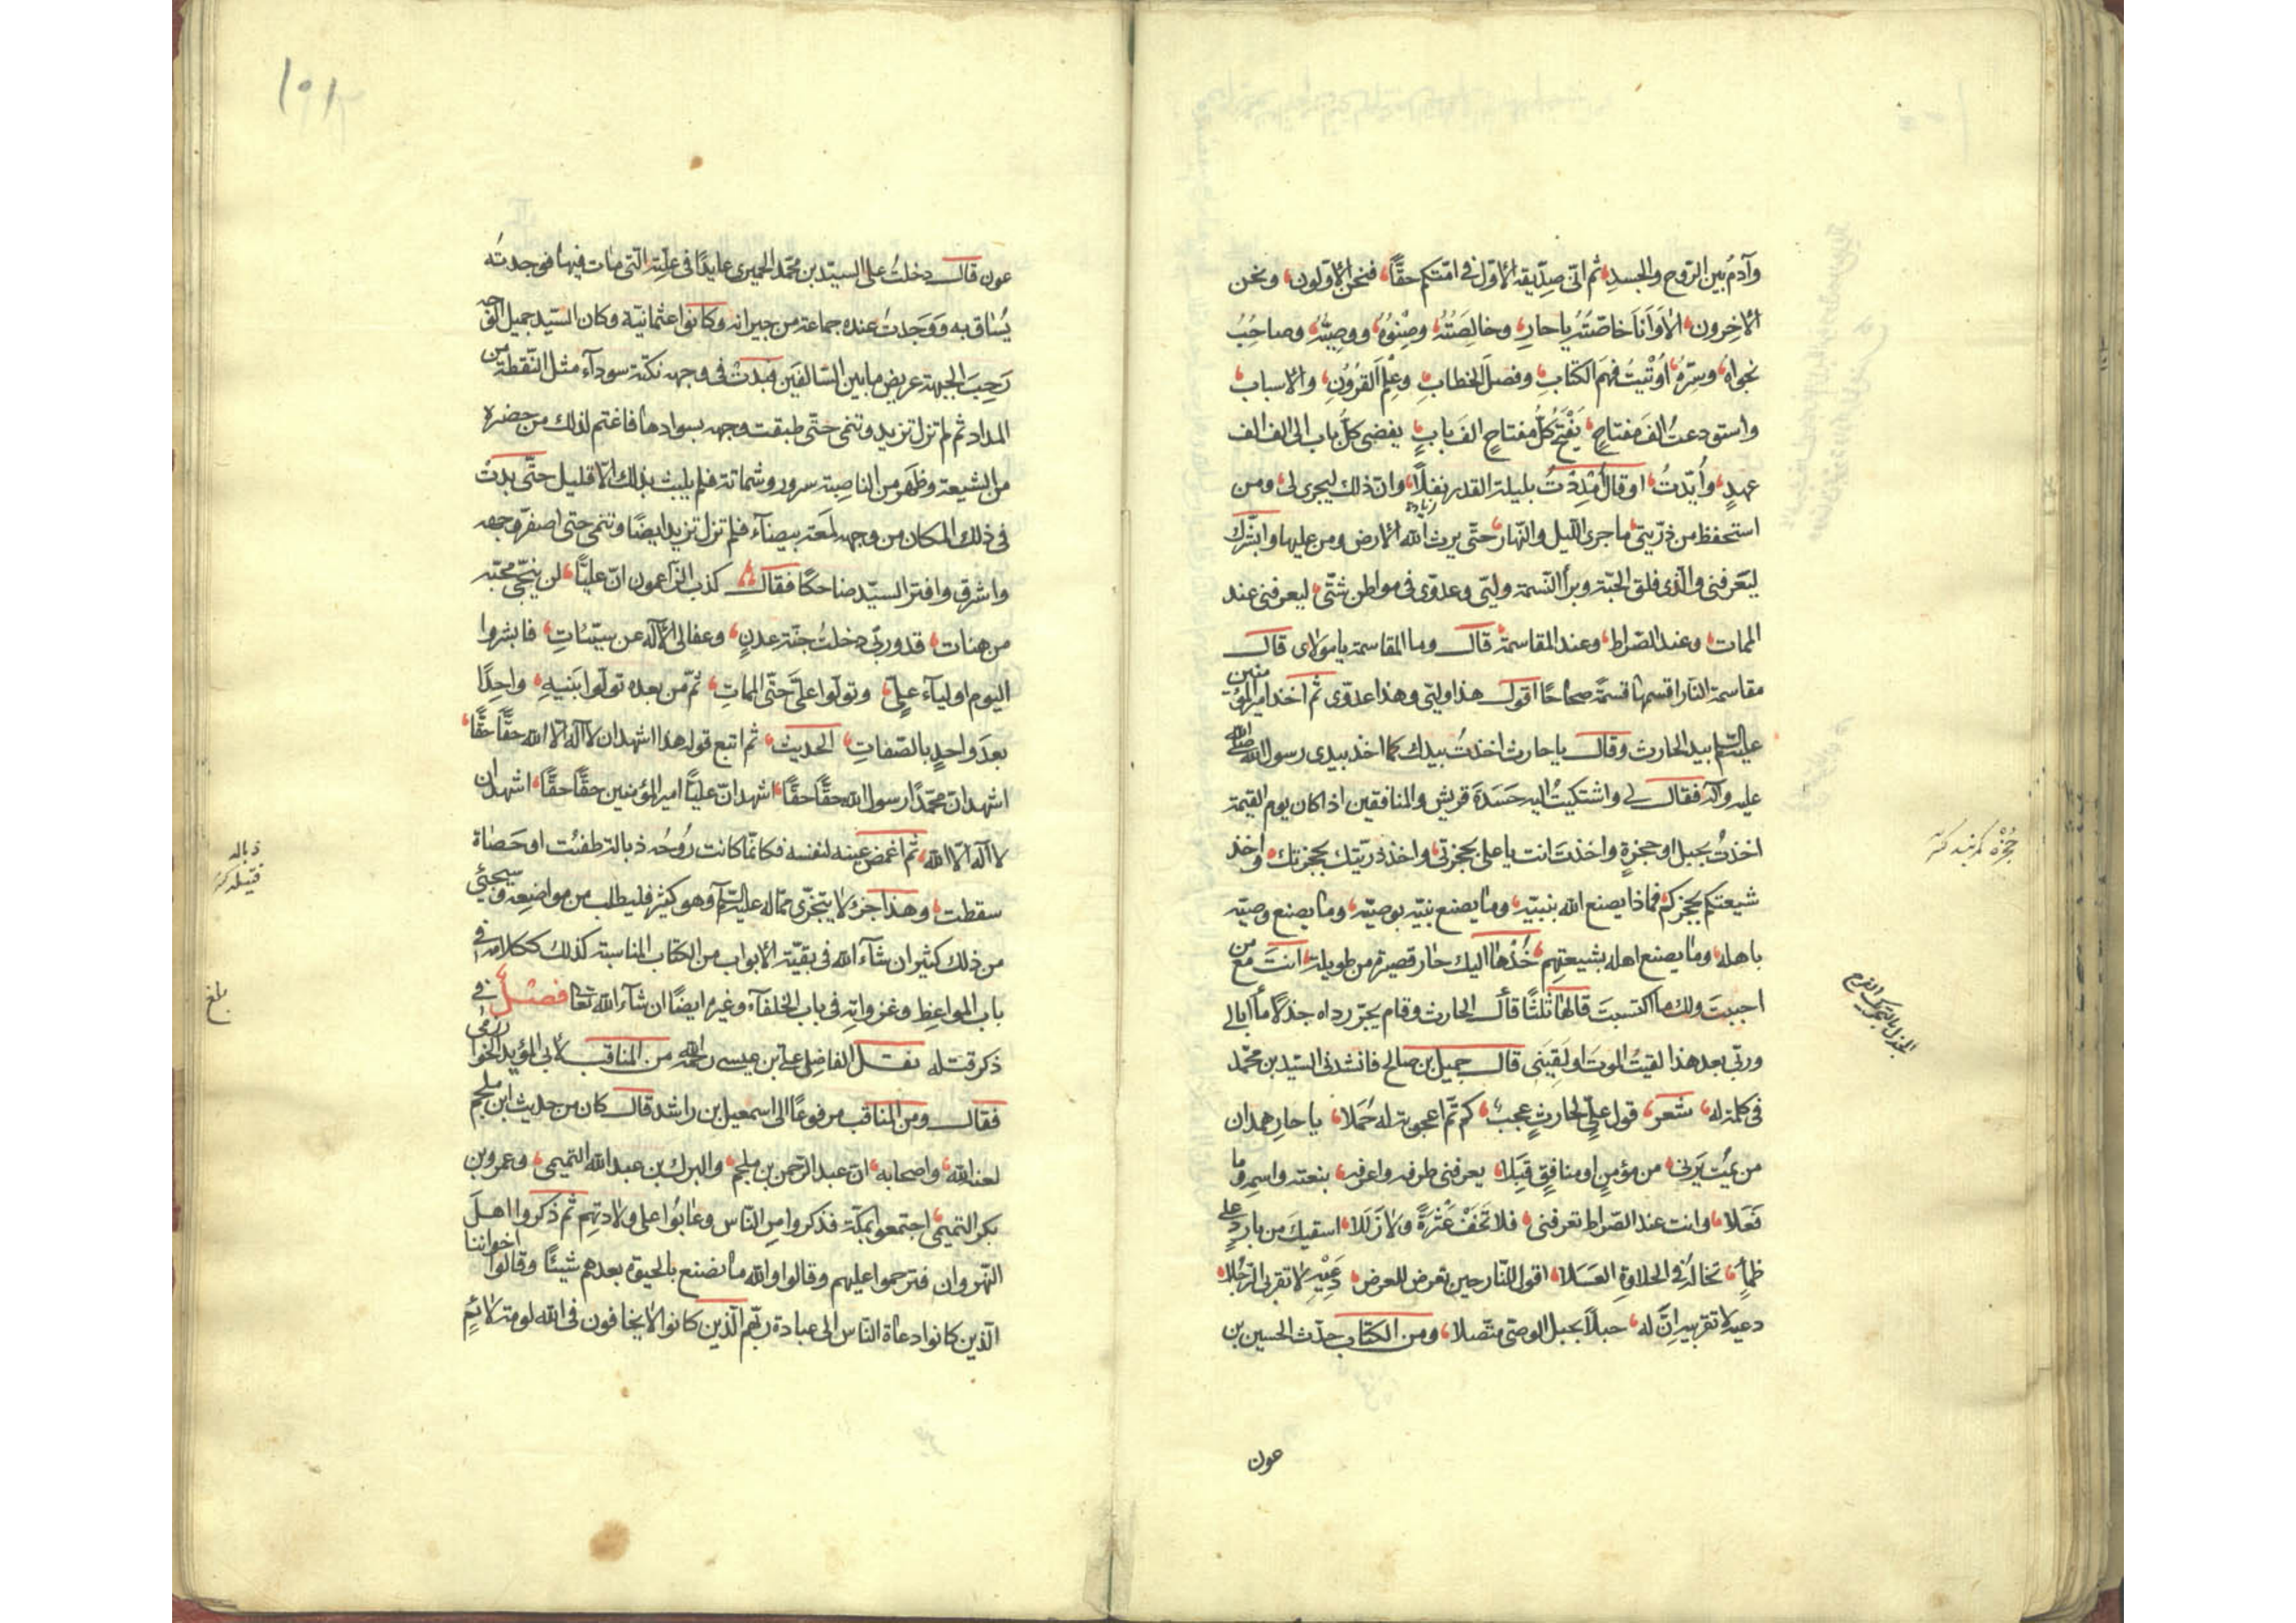 وآدم بين الروح والجسد ثم انى صديقه الاول فى امتكم حقًّا فنحن الاولون ونحن
الاخرون الا وَانَا خاصّتهُ يا حارِ وخالِصَتُهُ وصِنْوُهُ ووصيّهُ وصاحِبُ
نجواهُ وسِرّهُ اُوْتيتُ فهمَ الكتابِ وفصلَ الخطابِ وعِلْمَ القرُونِ والاسباب
واستودعتُ الف مفتاحٍ يَفْتَحُ كلُّ مفتاحٍ الفَ بابٍ يفضى كلُّ باب الى الف الف
عهدٍ وأُيّدْتُ او قال اُمْدِدْتُ بليلة القدر نفلًا وان ذلك ليجرى لى ومن
زيادة
استحفظ من ذرّيتى ما جرى الليل والنّهار حتّى يرث الله الارض ومن عليها وابشّرك
ليَعرفنى والذى فلق الحبّة وبرأ النّسمة وليّى وعدوّى فى مواطن شتّى ليعرفنى عند
الممات وعند الصّراط وعند المقاسمة قال وما المقاسمة يا مولاى قال
مقاسمة النّار اقسمها قسمةً صحاحًا اقول هذا وليّى وهذا عدوّى ثم اخذ امير المؤمنين
عليه السلام بيد الحارث وقال يا حارث اخذتُ بيدك كما اخذ بيدى رسول الله صلى الله
عليه وآله فقال لى واشتكيتُ اليه حَسَدَةَ قريش والمنافقين اذا كان يوم القيمة
اخذتُ بحبل او حجزةٍ واخذتَ انت يا على بحجزتى واخذ ذريّتك بحجزتك واخذ
شيعتكم بحجزكم فماذا يصنع الله بنبيّه وما يصنع نبيّه بوصيّه وما يصنع وصيّه
باهله وما يصنع اهله بشيعتِهم خُذْها اليك حار قصيرة من طويلة انتَ مع من
احببتَ ولك ما اكتسبتَ قالها ثلثًا قال الحارث وقام يجرّ رداه جذلًا ما أبالى
وربّى بعد هذا لقيتُ الموتَ او لَقِيَنى قال جميل بن صالح فانشدنى السيّد بن محمّد
فى كلمة له شعر قول علىٍّ لحارثٍ عجبٌ كم ثَمّ اعجوبة له حَمَلا يا حارِ همدان
من يمُت يَرَنى من مؤمنٍ او منافقٍ قِبَلا يعرفنى طرفه واعرفه بنعته واسمه وما
فَعَلا وانت عند الصّراط تعرفنى فلا تَخَفْ عَثْرَةً ولا زَلَلا اسقيكَ من باردٍ على
ظمأٍ تخالُهُ فى الحلاوة العَسَلا اقول للنّار حين تعرض للعرض دَعِيْهِ لا تقربى الرّجُلا
دعيه لا تقربيه اِنّ له حبلًا بحبل الوصىّ متّصلا ومن الكتاب حدّث الحسين بن
عون
الجذل بالتحريك الفرح
عون قال دخلتُ على السيّد بن محمّد الحميرى عايدًا فى علّته التى مات فيها فوجدتُه
يُساق به ووَجَدتُ عنده جماعة من جيرانه وكانوا عثمانية وكان السّيد جميل الوجه
رَحِبَ الجبهة عريض ما بين السّالفَين فبدتْ فى وجهه نكتة سودآء مثل النّقطة من
المداد ثم لم تزل تزيد وتنمى حتّى طبقت وجهه بسوادها فاغتم لذلك من حضره
من الشيعة وظَهَر من الناصبة سرور وشماتة فلم يلبث بذلك الا قليل حتّى بدتْ
فى ذلك المكان من وجهه لُمعَة بيضآء فلم تزل تزيد ايضًا وتنمى حتى اصفرّ وجهه
واشرق وافتر السيّد ضاحكًا فقال كذب الزّاعمون انّ عليًّا لن ينجّى محبّه
من هنات قد وربّى دخلتُ جنّة عدنٍ وعفا لى الاله عن سيّئاتِ فابشروا
اليوم اوليآء علىٍّ وتولّوا علىَّ حَتّى المماتِ ثمّ من بعده تولّوا بَنيهِ واحِدًا
بعدَ واحدٍ بالصّفاتِ الحديث ثم اتبع قوله هذا اشهد ان لا اله الا الله حقًّا حقًّا
اشهد ان محمّدًا رسول الله حقًّا حقًّا اشهد انّ عليًّا امير المؤمنين حقًّا حقًّا اشهد ان
لا اله الّا الله ثم اغمض عينه لنفسه فكانّما كانت رُوحُه ذبالة طفئت او حَصاة
سقطت وهذا جزء لا يتجزّى ممّا له عليه السلام وهو كثير فليطلب من مواضعه وسيجئ
من ذلك كثير ان شآء الله فى بقيّة الابواب من الكتاب المناسبة لذلك ككلامه فى
باب المواعظ وغزواته فى باب الخلفآء وغيره ايضًا ان شآء الله تعا فصل فى
ذكر قتله نقل الفاضل على بن عيسى رحمه الله من المناقب لابى المؤيد الخوارزمى
فقال ومن المناقب مرفوعًا الى اسمعيل بن راشد قال كان من حديث ابن ملجم
لعنه الله واصحابه ان عبد الرّحمن بن ملجم والبرك بن عبد الله التميمى وعمرو بن
بكر التميمى اجتمعوا بمكّة فذكروا امر النّاس وعابُوا على ولاتِهِم ثم ذكروا اهلَ
النّهروان فترحموا عليهم وقالوا والله ما نصنع بالحيوة بعدهم شيئًا وقالوا اخواننا
الّذين كانوا دعاة النّاس الى عبادة ربّهم الّذين كانوا لا يخافون فى الله لومة لائمٍ
ذباله
بلغ